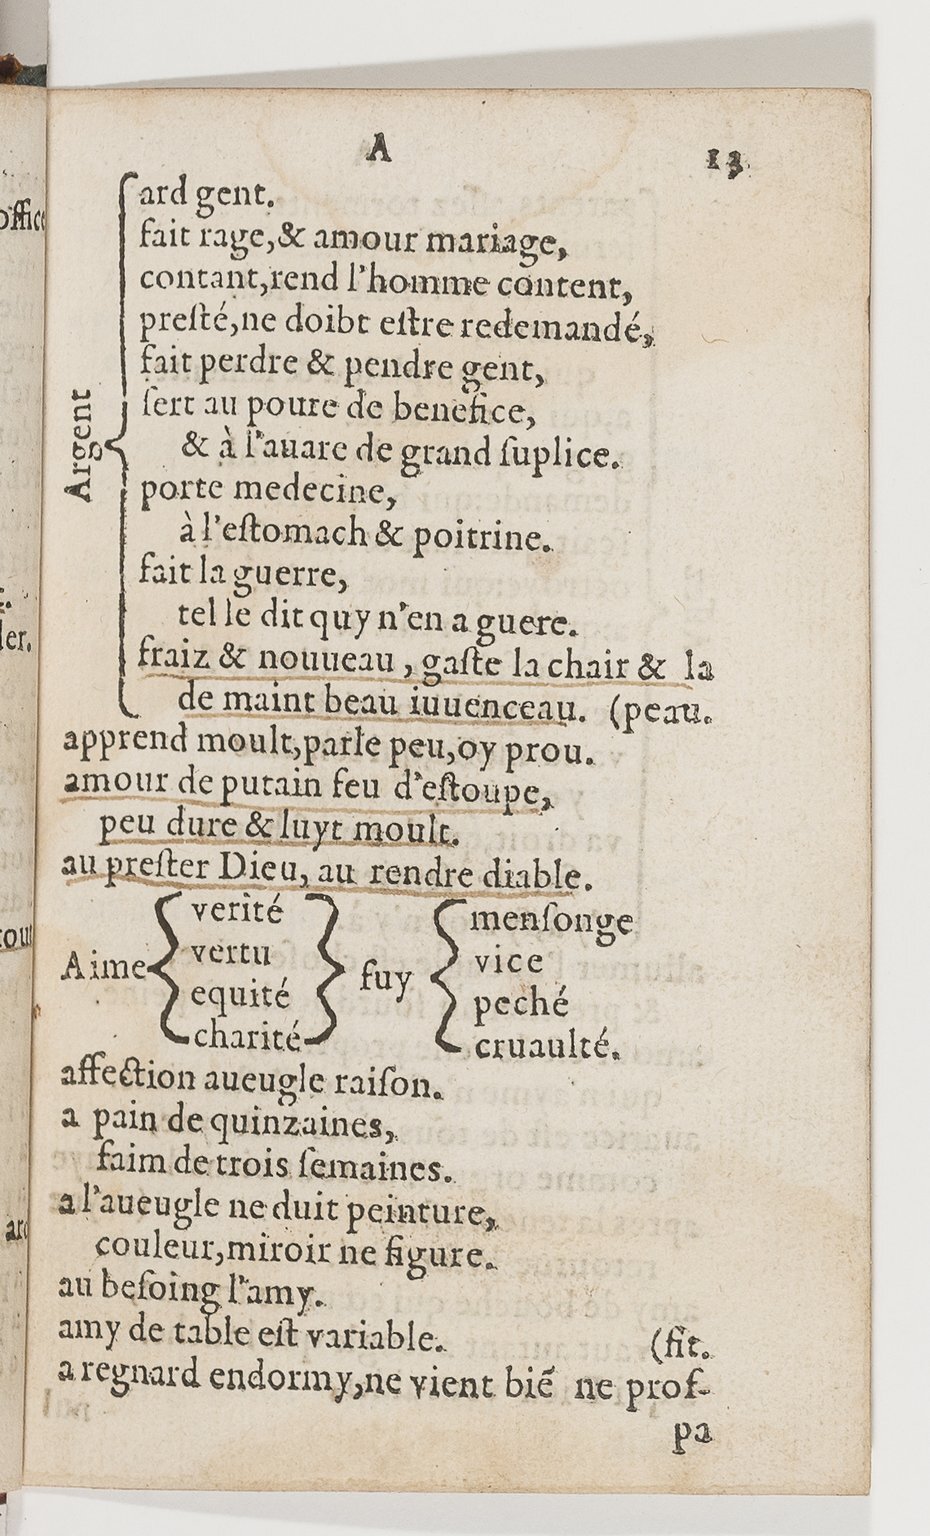 A 13
ard gent.
fait rage,& amour mariage,
contant,rend l'homme content,
presté,ne doibt estre redemandé,
fait perdre & pendre gent,
Argent
sert au poure de benefice,
& à l'auare de grand suplice.
porte medecine,
à l'estomach & poitrine.
fait la guerre,
tel le dit quy n'en a guere.
fraiz & nouueau , gaste la chair & la
de maint beau iuuenceau. (peau.
apprend moult,parle peu,oy prou.
amour de putain feu d'estoupe,
peu dure & luyt moult.
au prester Dieu, au rendre diable.
verité mensonge
vertu vice
Aime fuy
equité peché
charité cruaulté.
affection aueugle raison.
a pain de quinzaines,
faim de trois semaines.
a l'aueugle ne duit peinture,
couleur,miroir ne figure.
au besoing l'amy.
amy de table est variable. (fit.
a regnard endormy,ne vient biē ne prof-
pa
office
ler.